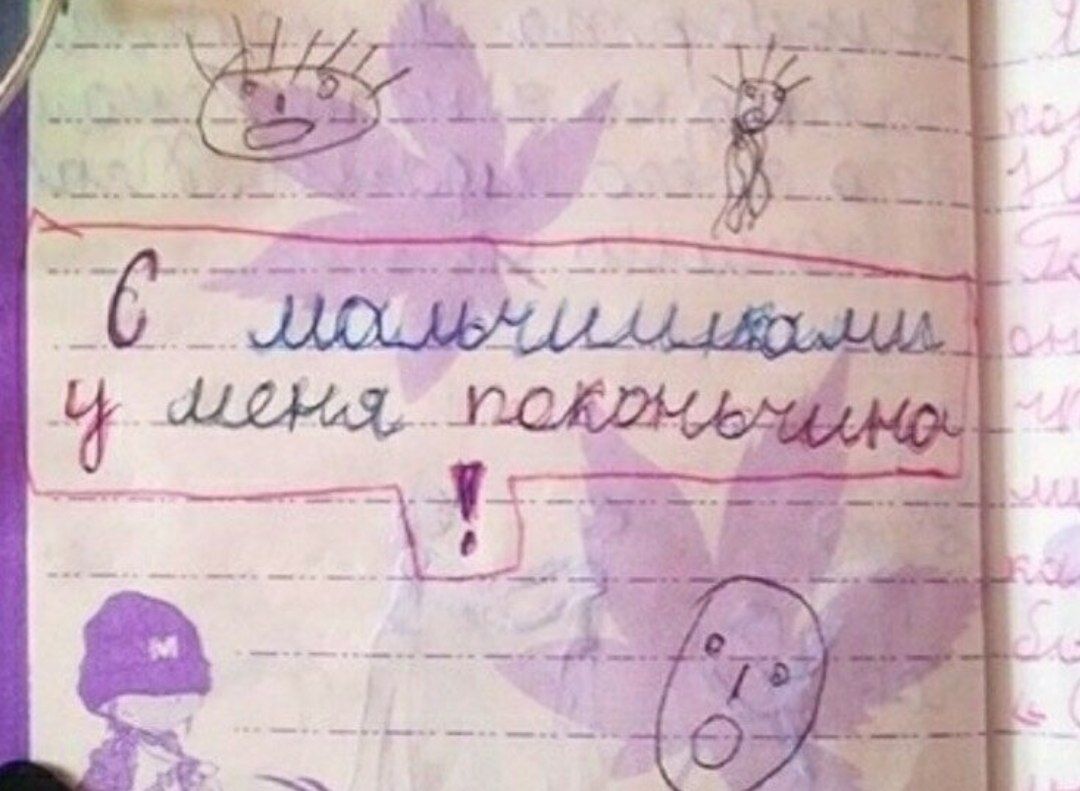 С мальчишками
у меня поконьчино
!
M